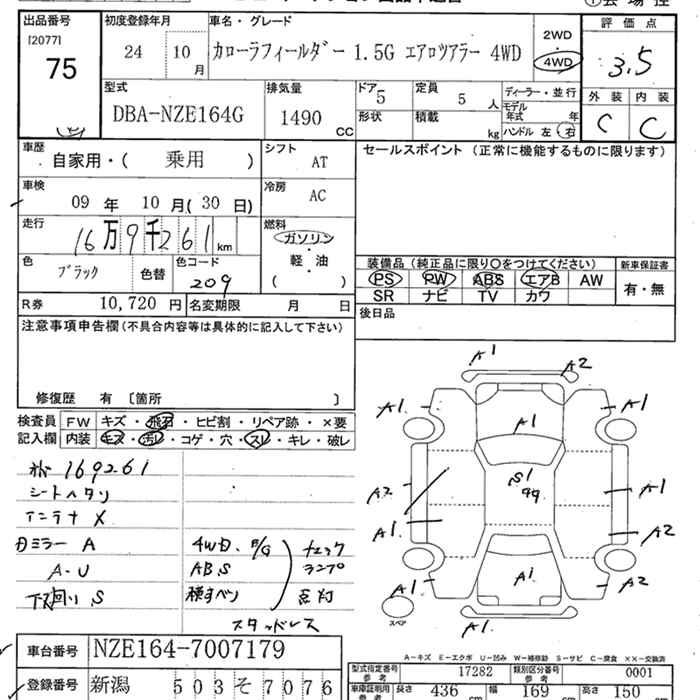 出品番号 初度登録年月 車名・グレード 評価点
[2077] 24 10月 カローラフィールダー 1.5G エアロツアラー 4WD 2WD・4WD 3.5
75
型式 排気量 ドア 5 定員 5 人 ディーラー・並行 外装 内装
DBA-NZE164G 1490 CC 形状 積載 kg モデル年式 年 C C
ハンドル 左・右
車歴 自家用・( 乗用 ) シフト AT セールスポイント (正常に機能するものに限ります)
車検 09 年 10 月( 30 日) 冷房 AC
走行 16万9千261km 燃料 ガソリン・軽・油 ( )
色 ブラック 色替 色コード 209
装備品(純正品に限り○をつけてください) 新車保証書
PS PW ABS エアB AW 有・無
SR ナビ TV カワ
R券 10,720 円 名変期限 月 日
後日品
注意事項申告欄(不具合内容等は具体的に記入して下さい)
修復歴 有 〔箇所 〕
検査員記入欄
FW キズ・飛石・ヒビ割・リペア跡・×要
内装 キズ・汚レ・コゲ・穴・スレ・キレ・破レ
169261
シートヘタリ
アンテナ X
ミラー A
A-U
下回り S
4WD、
ABS
横すべり
チェック
ランプ
点灯
スタッドレス
A1 A2
A1 A1 A1
S1
99
A2 A1
A1 A2
A1 A1 A2
スペア
A-キズ E-エクボ U-凹み W-補修跡 S-サビ C-腐食 XX-交換済
車台番号 NZE164-7007179
型式指定番号 参考 17282 類別区分番号 参考 0001
登録番号 新潟 503 そ 7076
車庫証明用 参考 長さ 436 cm 幅 169 cm 高さ 150 cm